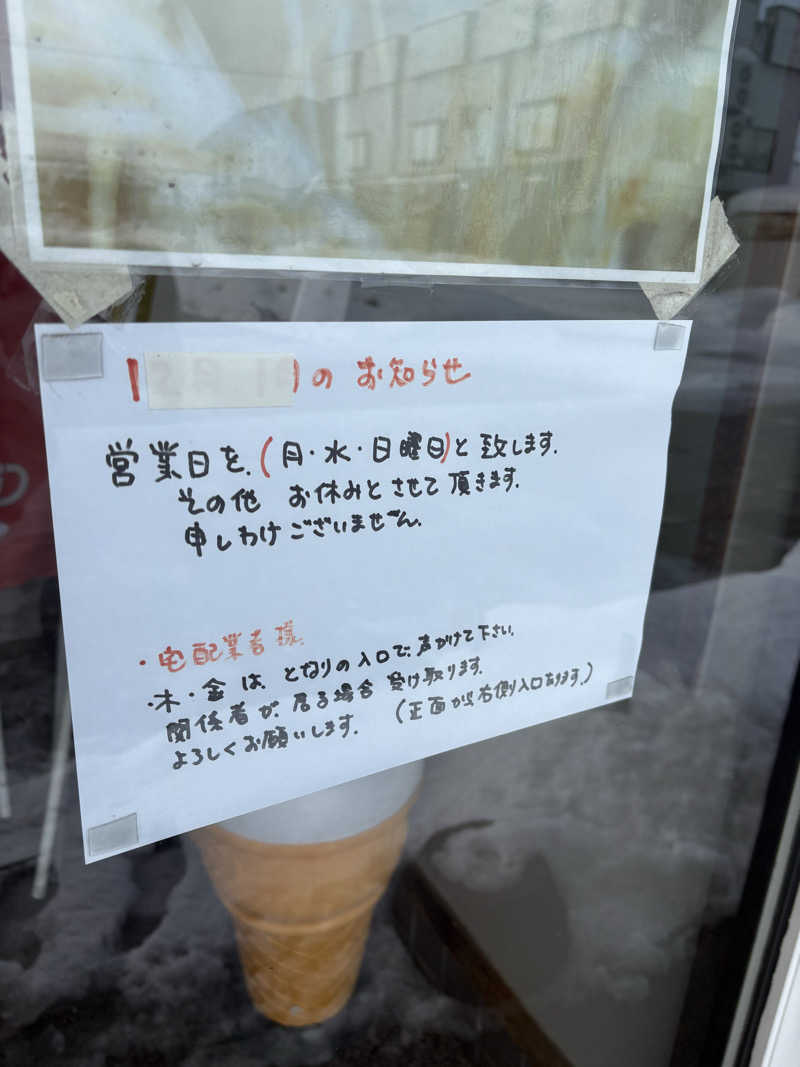 のお知らせ
営業日を、(月・水・日曜日)と致します。
その他 お休みとさせて頂きます。
申しわけございません。
・宅配業者様
・木・金は、となりの入口で、声かけて下さい。
関係者が、居る場合 受け取ります。
よろしくお願いします。 (正面から、右側入口あります。)